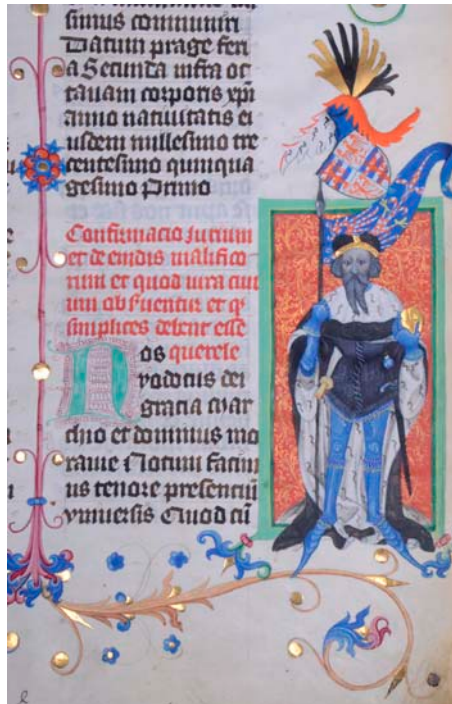 simus communiri
Datum prage feri
a Secunda infra oc
tauam corporis xpi
anno natiuitatis ei
usdem millesimo tre
centesimo quinqua
gesimo Primo
Confirmacio iurium
et de emdis malifico
rum et quod iura ciui
um obseruentur et q
simplices debent esse
Nos querele
yodocus dei
gracia mar
chio et dominus mo
rauie Notum facim
us tenore presenciu
vniuersis Quod cu